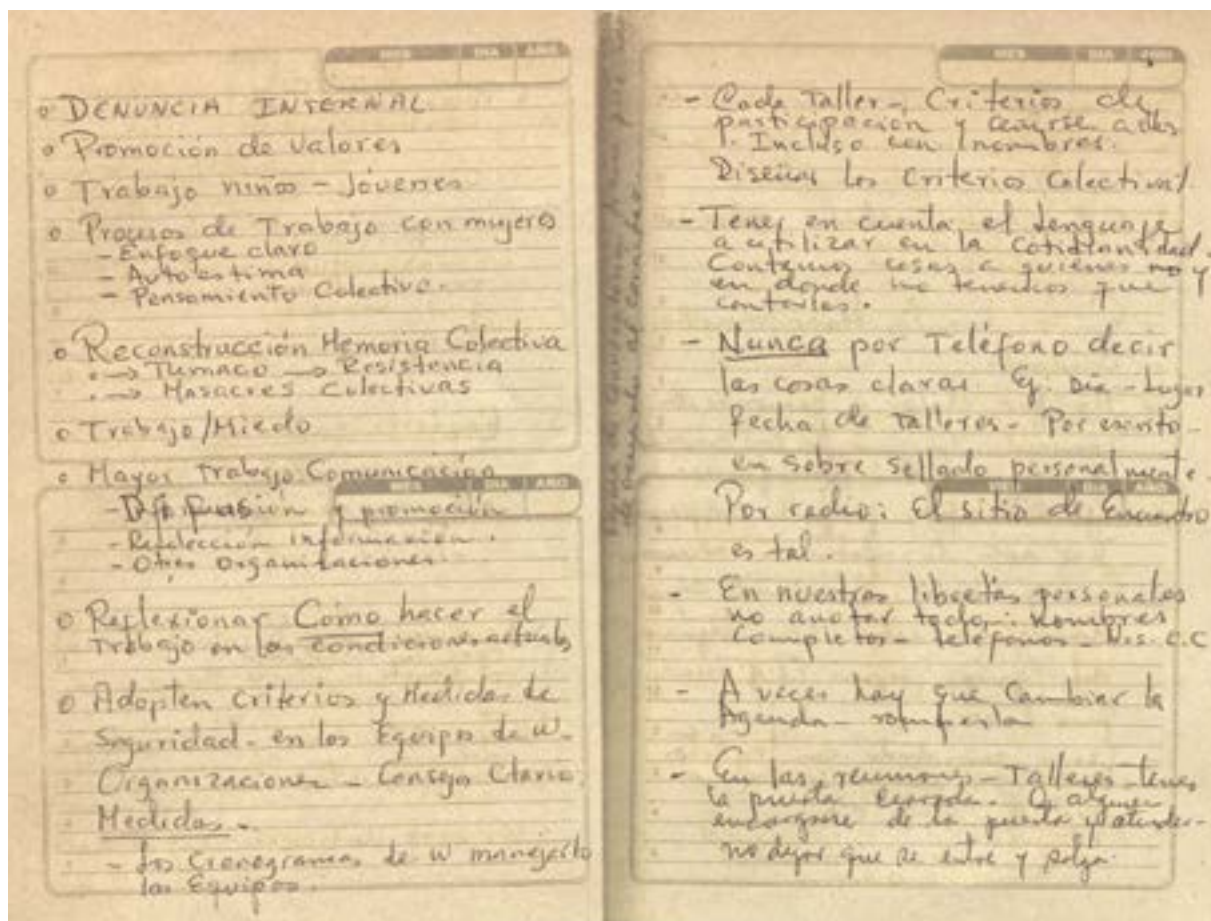 MES DIA AÑO
o DENUNCIA INTERNAL
o Promoción de Valores
o Trabajo niños - Jóvenes
o Procesos de Trabajo con mujeres
- Enfoque claro
- Autoestima
- Pensamiento Colectivo.
o Reconstrucción Memoria Colectiva
.→ Tumaco → Resistencia
.→ Masacres Colectivas
o Trabajo/Miedo
o Mayor Trabajo Comunicación
MES DIA AÑO
- y promoción
- Recolección información.
- Otras Organizaciones.
o Reflexionar Cómo hacer el
Trabajo en las condiciones actuales
o Adopten criterios y Medidas de
Seguridad - en los Equipos de W -
Organizaciones - Consejo
Medidas -
- Los Cronogramas de W manejarlo
los Equipos.
MES DIA AÑO
- Cada Taller - Criterios de
participación y a
Incluso con nombres.
Diseñar los Criterios Colectivos
- Tener en cuenta el lenguaje
a utilizar en la Cotidianidad.
Contamos cosas a quienes no y
en donde no tenemos que
contarlas.
- Nunca por Teléfono decir
las cosas claras Ej. Dia - Lugar
fecha de Talleres - Por escrito -
en sobre sellado personalmente.
MES DIA AÑO
Por radio: El sitio de Encuentro
es tal.
- En nuestras libretas personales
no anotar todo: nombres
Completos - teléfonos - C.C
- A veces hay que Cambiar la
Agenda - romperla
- En las reuniones - Talleres - tener
la puerta cerrada. O alguien
encargarse de la puerta y atender -
no dejar que se entre y salga.